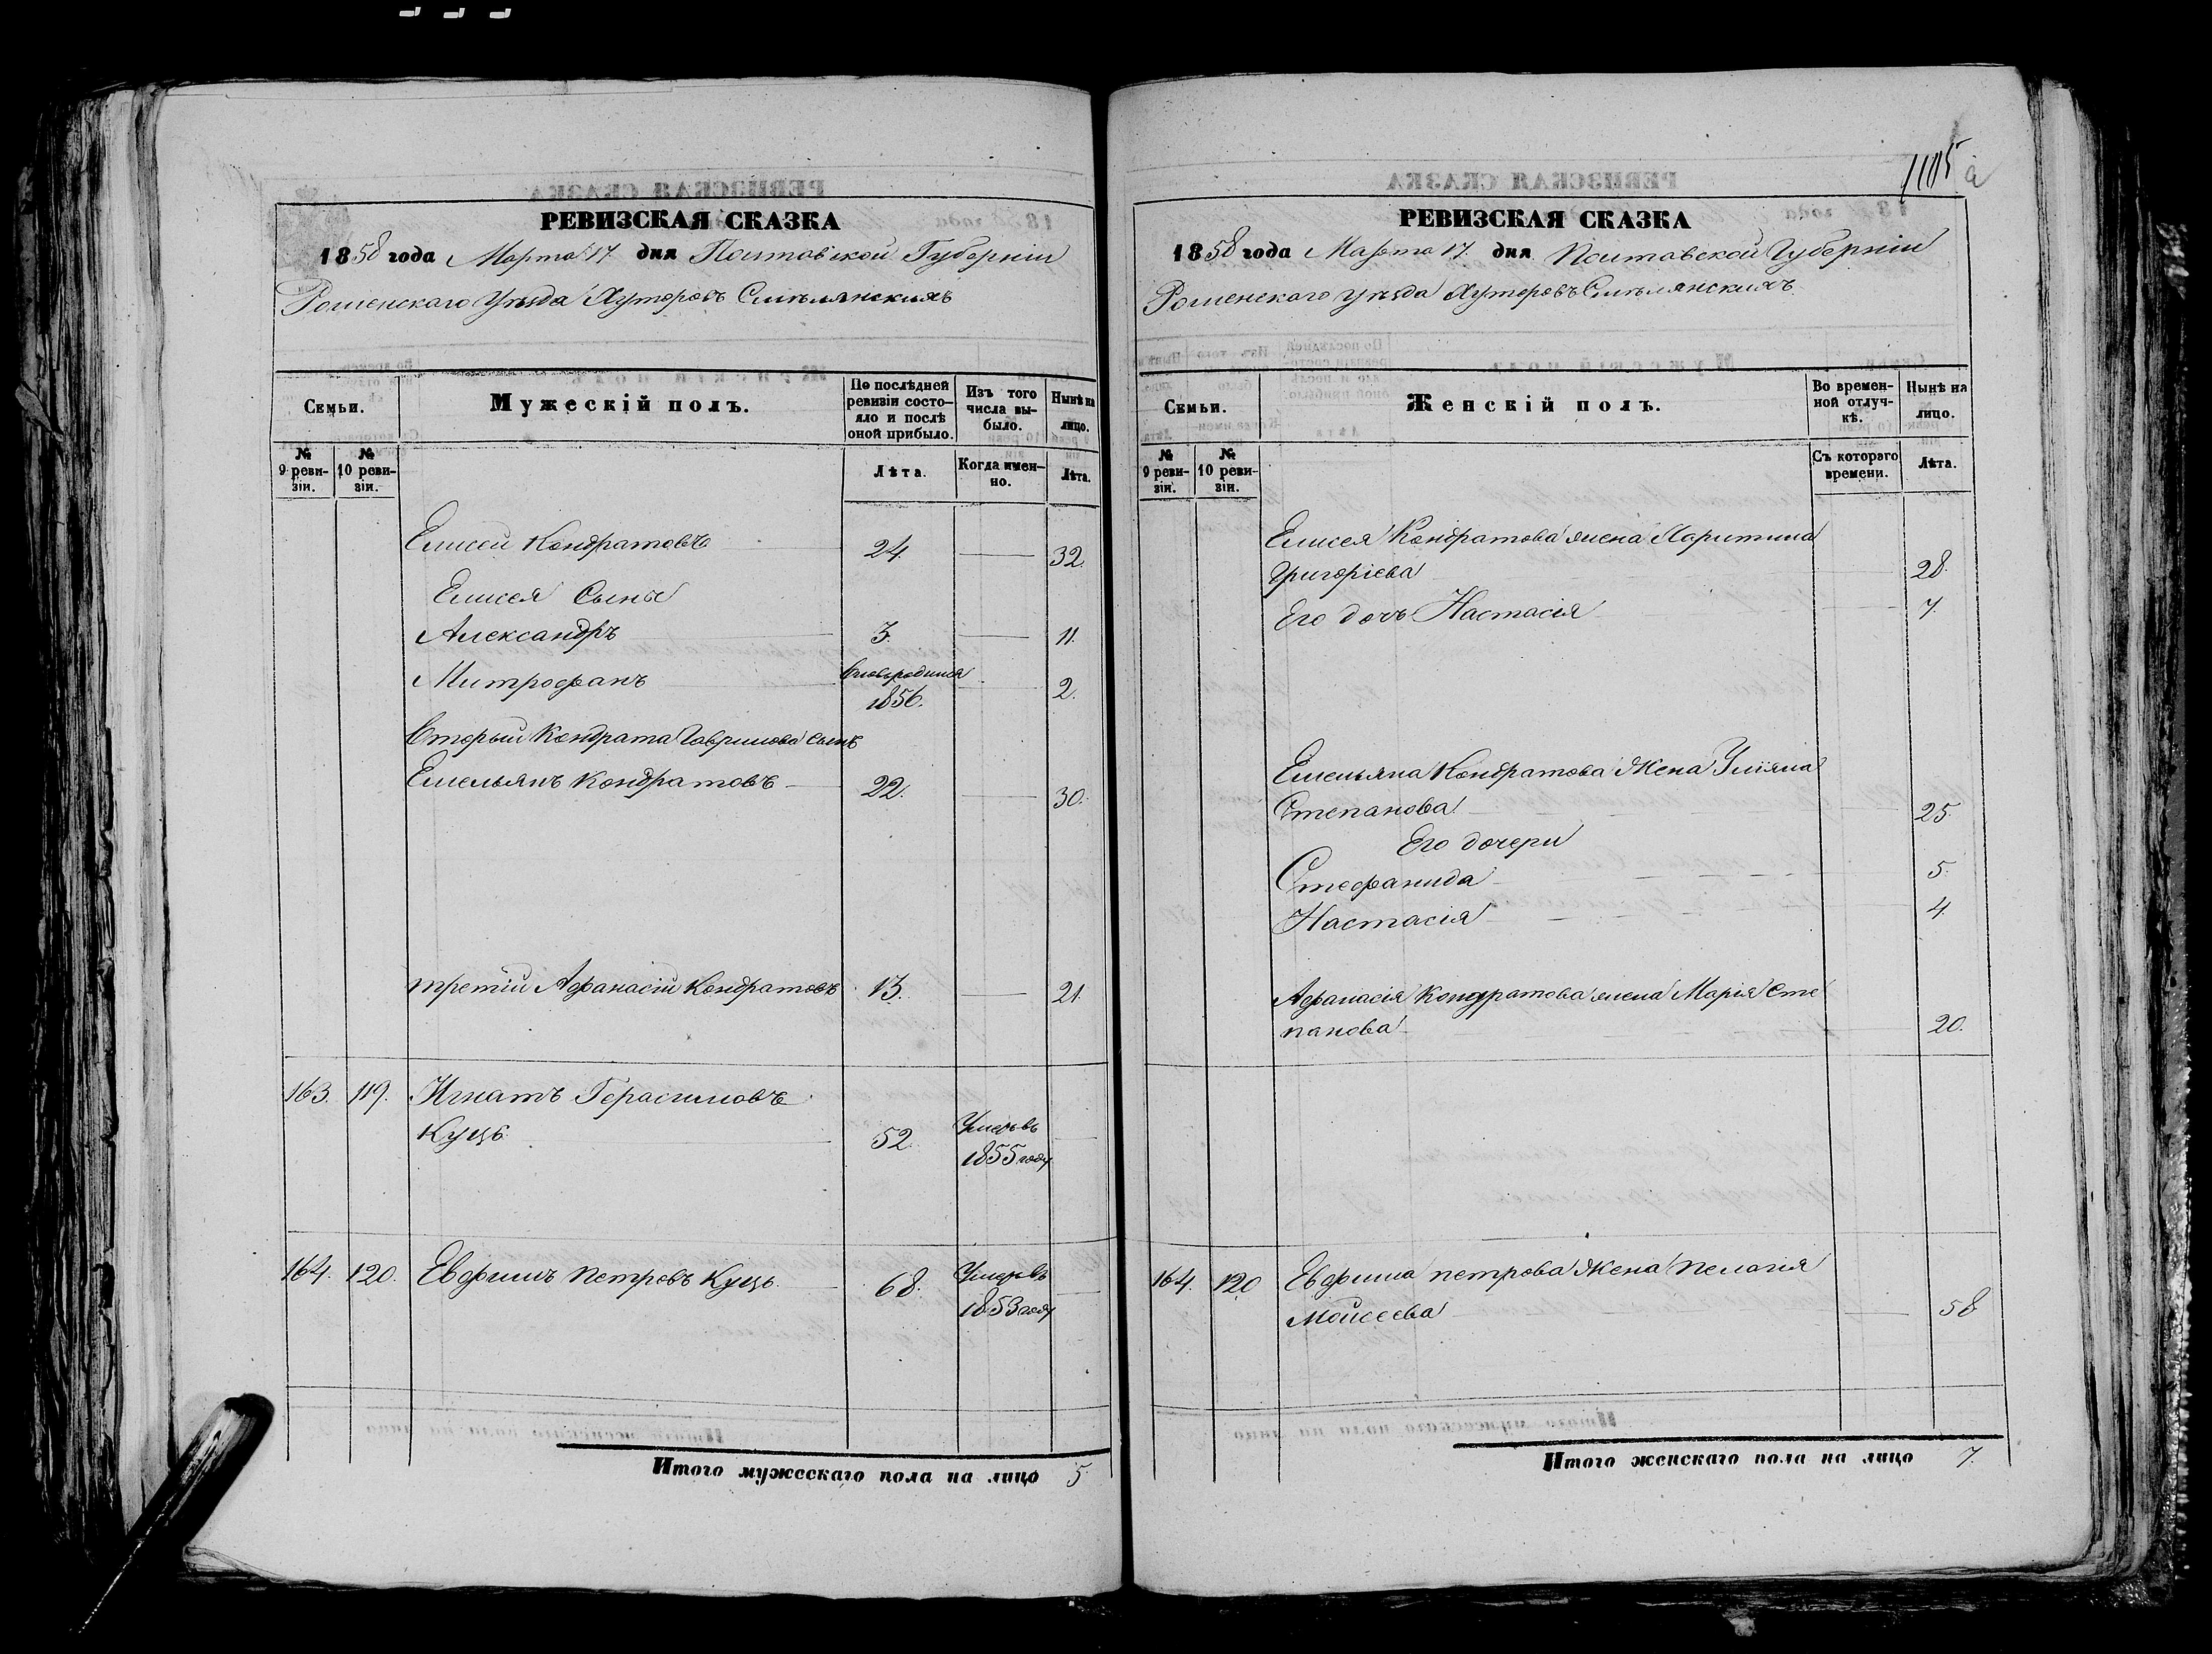 1105 а
РЕВИЗСКАЯ СКАЗКА
1858 года Марта 17. дня Полтавской Губерніи
Роменскаго Уѣзда Хуторовъ Смѣлянскихъ
Семьи.
Мужескій полъ.
По послѣдней ревизіи состояло и послѣ оной прибыло.
Изъ того числа выбыло.
Нынѣ на лицо.
№ 9 ревизіи.
№ 10 ревизіи.
Лѣта.
Когда именно.
Лѣта.
Елисей Кондратовъ 24 — 32.
Елисея Сыны
Александръ 3. — 11.
Митрофанъ вновьродился — 2.
1856.
Вторый Кондрата Гаврилова сынъ
Емельянъ Кондратовъ — 22. — 30.
третій Афанасій Кондратовъ 13. — 21.
163. 119. Игнатъ Герасимовъ
Куцъ 52 Умеръ въ
1855 году
164. 120. Евфимъ Петровъ Куцъ 68. Умеръ въ
1853 году
Итого мужескаго пола на лицо 5
РЕВИЗСКАЯ СКАЗКА
1858 года Марта 17. дня Полтавской Губерніи
Роменскаго уѣзда Хуторовъ Смѣлянскихъ
Семьи.
Женскій полъ.
Во временной отлучкѣ.
Нынѣ на лицо.
№ 9 ревизіи.
№ 10 ревизіи.
Съ котораго времени.
Лѣта.
Елисея Кондратова жена Харитина
Григоріева 28.
Его дочь Настасія 7.
Емельяна Кондратова Жена Уліяна
Степанова 25
Его дочери
Стефанида 5.
Настасія 4.
Афанасія Кондратова жена Марія Сте
панова 20.
164. 120 Евфима петрова Жена Пелагія
Моисеева 58
Итого женскаго пола на лицо 7.